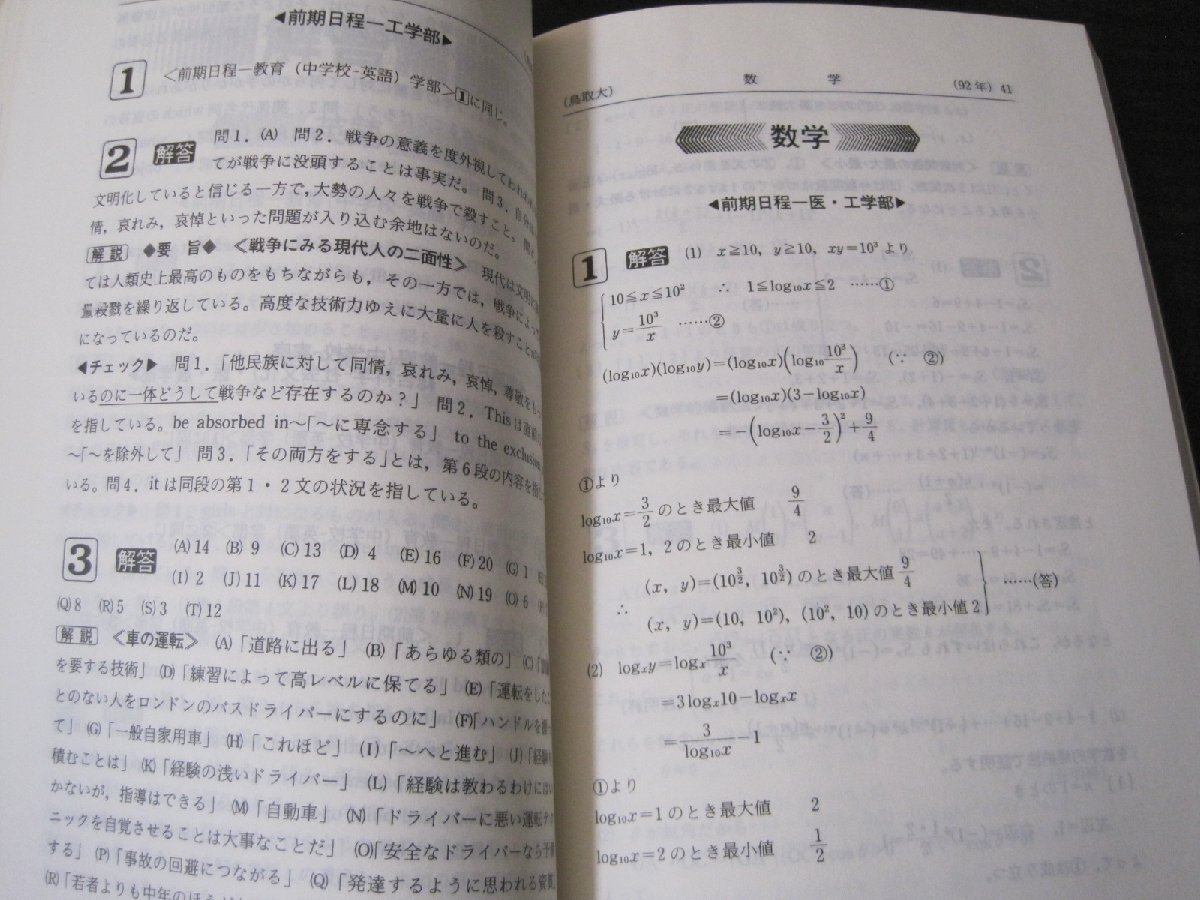 ◀前期日程―工学部▶
1 <前期日程―教育(中学校-英語)学部>1に同じ。
2 解答 問1.(A) 問2.戦争の意義を度外視してわれわれ
てが戦争に没頭することは事実だ。 問3.自分
文明化していると信じる一方で,大勢の人々を戦争で殺すこと。 問
情,哀れみ,哀悼といった問題が入り込む余地はないのだ。
解説 ◆要 旨◆ <戦争にみる現代人の二面性> 現代は文明
ては人類史上最高のものをもちながらも,その一方では,戦争によっ
量殺戮を繰り返している。高度な技術力ゆえに大量に人を殺すこと
になっているのだ。
◀チェック▶ 問1.「他民族に対して同情,哀れみ,哀悼,尊敬をも
いるのに一体どうして戦争など存在するのか?」 問2.Thisは直前
を指している。be absorbed in~「~に専念する」 to the exclusion
~「~を除外して」 問3.「その両方をする」とは,第6段の内容を指
いる。問4.itは同段の第1・2文の状況を指している。
3 解答 (A)14 (B)9 (C)13 (D)4 (E)16 (F)20 (G)1
(I)2 (J)11 (K)17 (L)18 (M)10 (N)19 (O)6
(Q)8 (R)5 (S)3 (T)12
解説 <車の運転> (A)「道路に出る」 (B)「あらゆる類の」
を要する技術」 (D)「練習によって高レベルに保てる」 (E)「運転をした
とのない人をロンドンのバスドライバーにするのに」 (F)「ハンドルを
て」 (G)「一般自家用車」 (H)「これほど」 (I)「~へと進む」 (J)「経験
積むことは」 (K)「経験の浅いドライバー」 (L)「経験は教わるわけには
かないが,指導はできる」 (M)「自動車」 (N)「ドライバーに悪い運転
ニックを自覚させることは大事なことだ」 (O)「安全なドライバーなら
する」 (P)「事故の回避につながる」 (Q)「発達するように思われる資質
(R)「若者よりも中年のほうが
(鳥取大) 数 学 (92年) 41
数学
◀前期日程―医・工学部▶
1 解答 (1) x≧10, y≧10, xy=10³より
10≦x≦10² ∴ 1≦log₁₀x≦2 ……①
y=10³/x ……②
(log₁₀x)(log₁₀y)=(log₁₀x)(log₁₀ 10³/x) (∵ ②)
=(log₁₀x)(3-log₁₀x)
=-(log₁₀x-3/2)²+9/4
①より
log₁₀x=3/2 のとき最大値 9/4
log₁₀x=1, 2のとき最小値 2
∴ (x, y)=(10^(3/2), 10^(3/2))のとき最大値 9/4
(x, y)=(10, 10²), (10², 10)のとき最小値2 ……(答)
(2) logₓy=logₓ 10³/x (∵ ②)
=3logₓ10-logₓx
=3/log₁₀x-1
①より
log₁₀x=1のとき最大値 2
log₁₀x=2のとき最小値 1/2